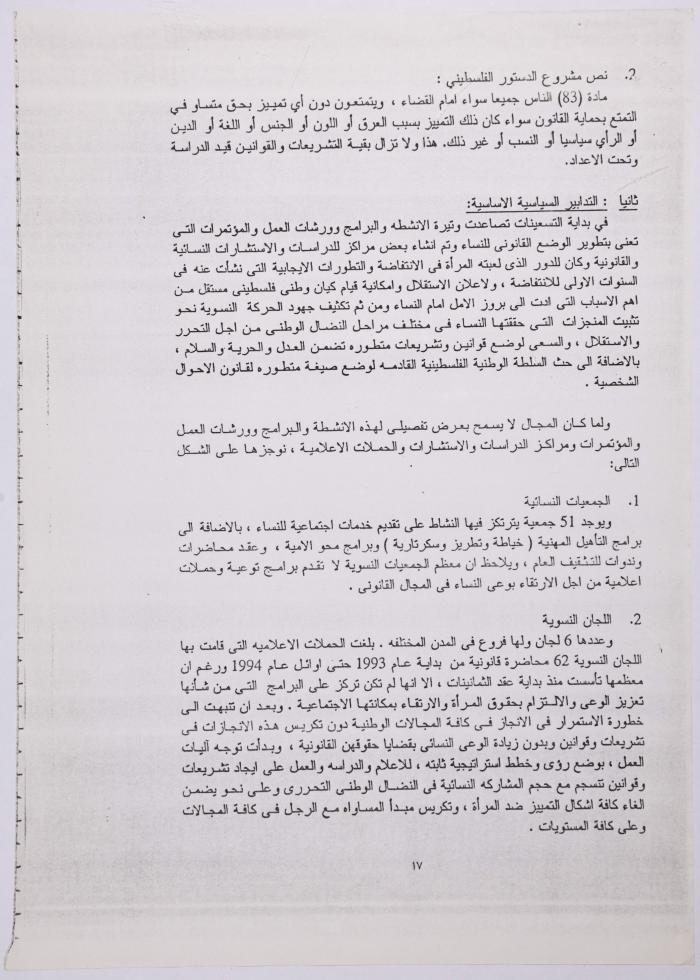 2. نص مشروع الدستور الفلسطيني :
مادة (83) الناس جميعا سواء امام القضاء ، ويتمتعون دون أي تمييز بحق متساو في
التمتع بحماية القانون سواء كان ذلك التمييز بسبب العرق أو اللون أو الجنس أو اللغة أو الدين
أو الرأي سياسيا أو النسب أو غير ذلك. هذا ولا تزال بقية التشريعات والقوانين قيد الدراسة
وتحت الاعداد.
ثانيا : التدابير السياسية الاساسية:
في بداية التسعينات تصاعدت وتيرة الانشطه والبرامج وورشات العمل والمؤتمرات التى
تعنى بتطوير الوضع القانونى للنساء وتم انشاء بعض مراكز للدراسات والاستشارات النسائية
والقانونية وكان للدور الذى لعبته المرأة فى الانتفاضة والتطورات الايجابية التى نشأت عنه فى
السنوات الاولى للانتفاضة ، ولاعلان الاستقلال وامكانية قيام كيان وطنى فلسطينى مستقل من
اهم الاسباب التى ادت الى بروز الامل امام النساء ومن ثم تكثيف جهود الحركة النسوية نحو
تثبيت المنجزات التى حققتها النساء فى مختلف مراحل النضال الوطنى من اجل التحرر
والاستقلال ، والسعى لوضع قوانين وتشريعات متطوره تضمن العدل والحرية والسلام ،
بالاضافة الى حث السلطة الوطنية الفلسطينية القادمه لوضع صيغة متطوره لقانون الاحوال
الشخصية .
ولما كان المجال لا يسمح بعرض تفصيلى لهذه الانشطة والبرامج وورشات العمل
والمؤتمرات ومراكز الدراسات والاستشارات والحملات الاعلامية ، نوجزها على الشكل
التالى:
1. الجمعيات النسائية
ويوجد 51 جمعية يترتكز فيها النشاط على تقديم خدمات اجتماعية للنساء ، بالاضافة الى
برامج التأهيل المهنية ( خياطة وتطريز وسكرتارية ) وبرامج محو الامية ، وعقد محاضرات
وندوات للتثقيف العام ، ويلاحظ ان معظم الجمعيات النسوية لا تقدم برامج توعية وحملات
اعلامية من اجل الارتقاء بوعى النساء فى المجال القانونى .
2. اللجان النسوية
وعددها 6 لجان ولها فروع فى المدن المختلفه . بلغت الحملات الاعلاميه التى قامت بها
اللجان النسوية 62 محاضرة قانونية من بداية عام 1993 حتى اوائل عام 1994 ورغم ان
معظمها تأسست منذ بداية عقد الثمانينات ، الا انها لم تكن تركز على البرامج التى من شأنها
تعزيز الوعى والالتزام بحقوق المرأة والارتقاء بمكانتها الاجتماعية . وبعد ان تنبهت الى
خطورة الاستمرار فى الانجاز فى كافة المجالات الوطنية دون تكريس هذه الانجازات فى
تشريعات وقوانين وبدون زيادة الوعى النسائى بقضايا حقوقهن القانونية ، وبدأت توجه آليات
العمل ، بوضع رؤى وخطط استراتيجية ثابته ، للاعلام والدراسه والعمل على ايجاد تشريعات
وقوانين تنسجم مع حجم المشاركه النسائية فى النضال الوطنى التحررى وعلى نحو يضمن
الغاء كافة اشكال التمييز ضد المرأة ، وتكريس مبدأ المساواه مع الرجل فى كافة المجالات
وعلى كافة المستويات .
١٧